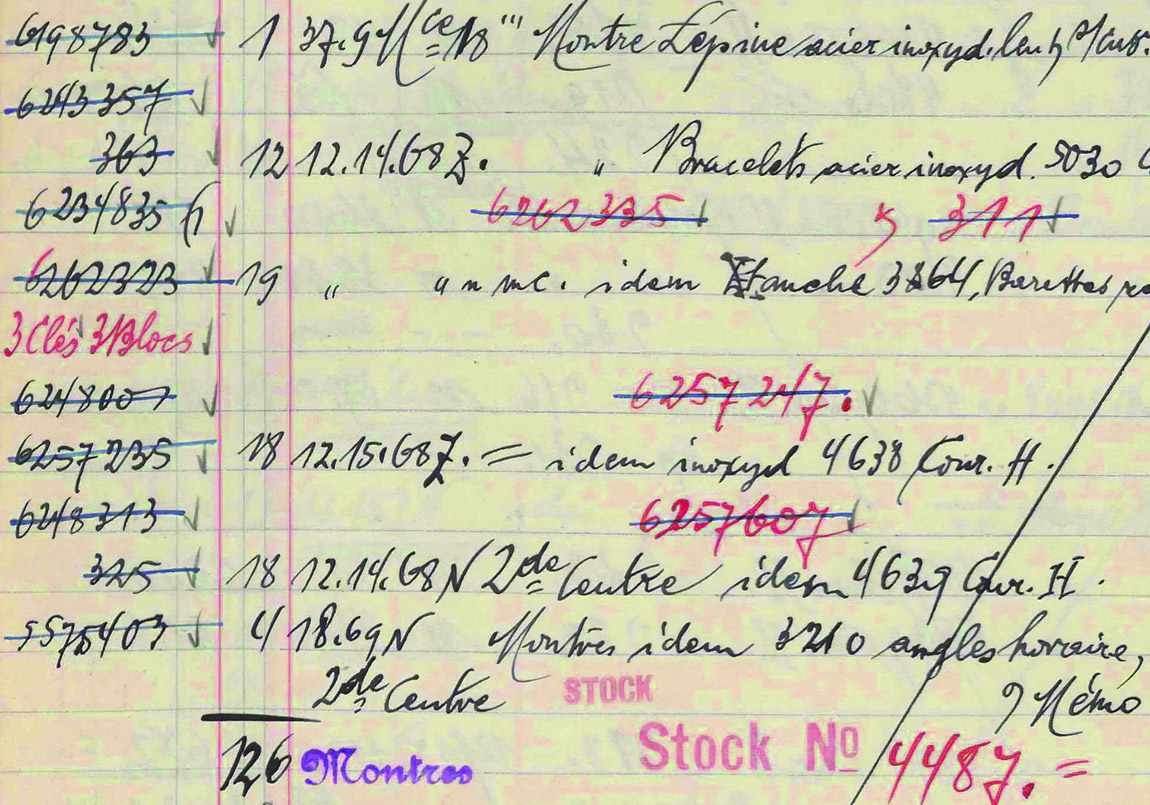 6198783 1 37.9 Mce 18''' Montre Lépine acier inoxyd.
6243357
363 12 12.14.68 Z. " Bracelets acier inoxyd. 5030
6234835 6262335 311
6262323 19 " " n mc. idem Etanche 3864, Barettes
3 Clés 3 Blocs
6248007 6257247.
6257235 18 12.15.68Z. = idem inoxyd 4638 Cour. H.
6248313 6257607
325 18 12.14.68 N 2de Centre idem 4639 Cour. H.
5575403 4 18.69 N Montres idem 3210 angles horraire,
2de Centre STOCK Mémo
126 Montres Stock No 4487. =